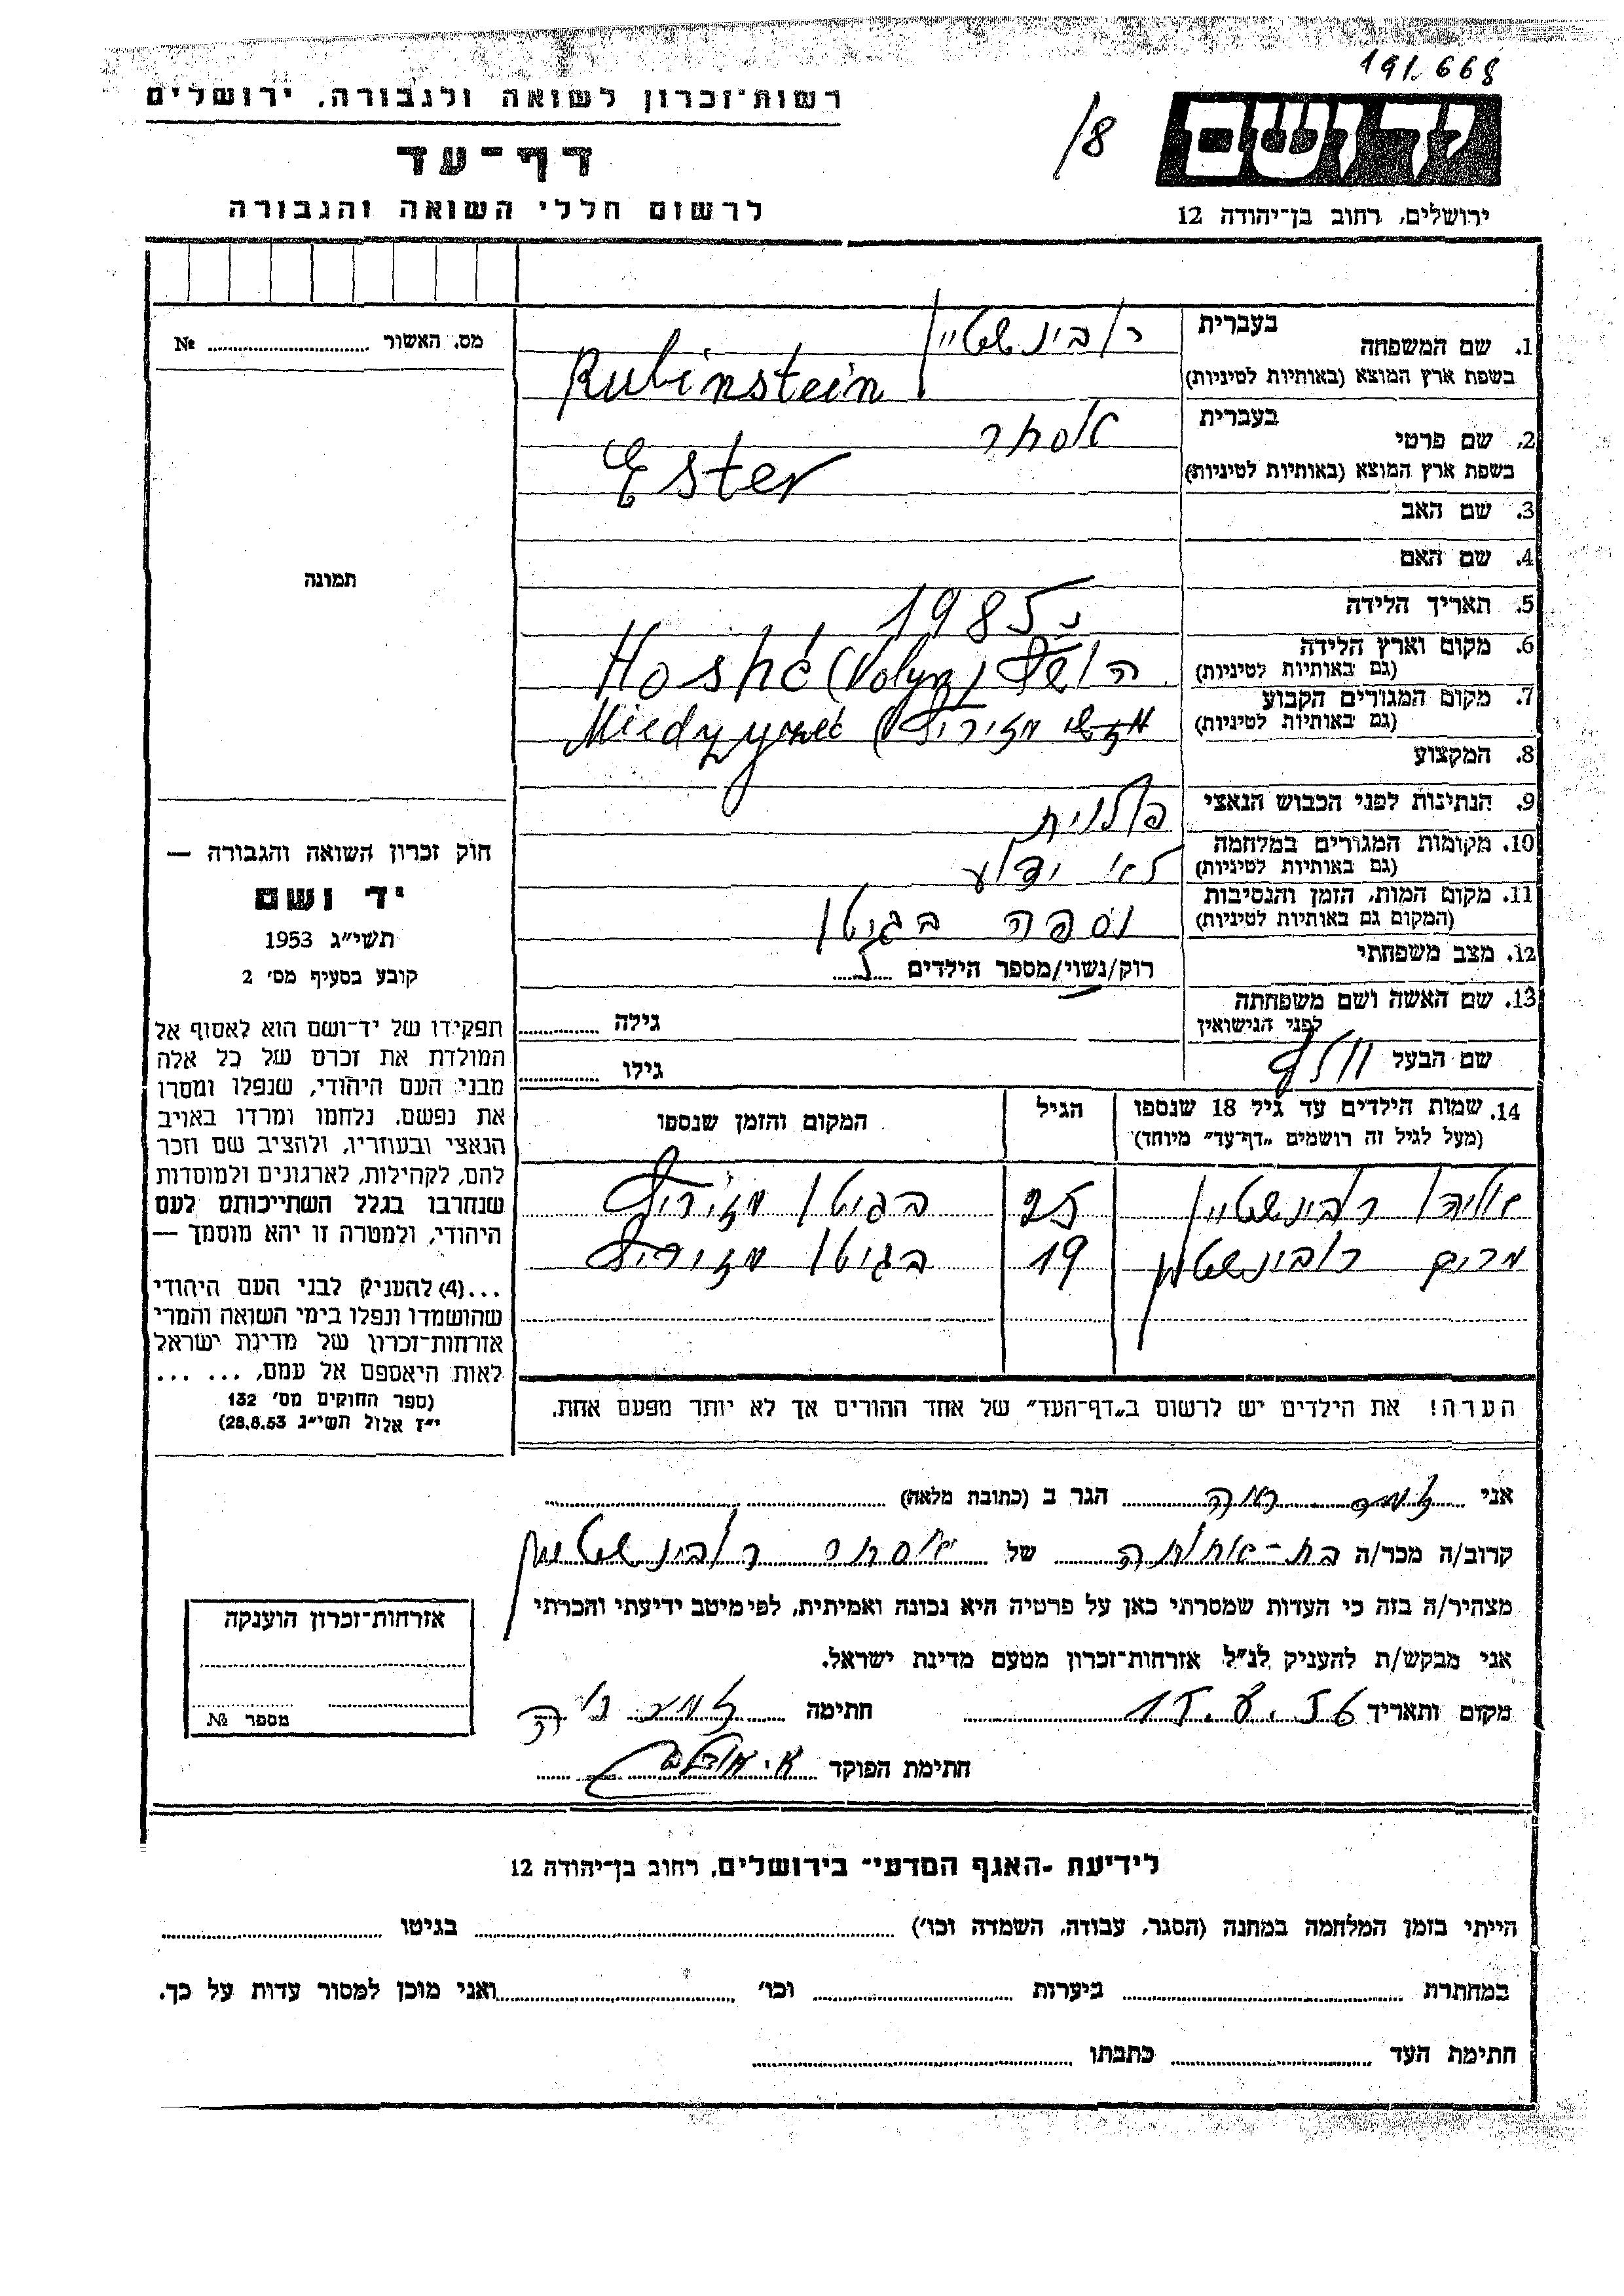 191.668
רשות-זכרון לשואה ולגבורה, ירושלים
יד ושם
/8
דף-עד
לרשום חללי השואה והגבורה
ירושלים, רחוב בן-יהודה 12
מס. האשור № ........
תמונה
1. שם המשפחה בעברית רובינשטיין
בשפת ארץ המוצא (באותיות לטיניות) Rubinstein
2. שם פרטי בעברית אסתר
בשפת ארץ המוצא (באותיות לטיניות) Ester
3. שם האב
4. שם האם
5. תאריך הלידה 1985
6. מקום וארץ הלידה (גם באותיות לטיניות) Hoshé (Volyn)
7. מקום המגורים הקבוע (גם באותיות לטיניות) מזיריץ
8. המקצוע
9. הנתינות לפני הכבוש הנאצי פולנית
10. מקומות המגורים במלחמה (גם באותיות לטיניות) לא ידוע
11. מקום המות, הזמן והנסיבות (המקום גם באותיות לטיניות) נספה בגיטו
12. מצב משפחתי רוק/נשוי/מספר הילדים
13. שם האשה ושם משפחתה לפני הנישואין גילה ........
שם הבעל וולף גילו ........
14. שמות הילדים עד גיל 18 שנספו הגיל המקום והזמן שנספו
(מעל לגיל זה רושמים "דף-עד" מיוחד)
רובינשטיין 25 בגיטו מזיריץ
מרים רובינשטיין 19 בגיטו מזיריץ
הערה! את הילדים יש לרשום ב"דף-העד" של אחד ההורים אך לא יותר מפעם אחת.
חוק זכרון השואה והגבורה —
יד ושם
תשי"ג 1953
קובע בסעיף מס' 2
תפקידו של יד-ושם הוא לאסוף אל
המולדת את זכרם של כל אלה
מבני העם היהודי, שנפלו ומסרו
את נפשם, נלחמו ומרדו באויב
הנאצי ובעוזריו, ולהציב שם וזכר
להם, לקהילות, לארגונים ולמוסדות
שנחרבו בגלל השתייכותם לעם
היהודי, ולמטרה זו יהא מוסמך —
...(4) להעניק לבני העם היהודי
שהושמדו ונפלו בימי השואה והמרי
אזרחות-זכרון של מדינת ישראל
לאות היאספם אל עמם, ... ...
(ספר החוקים מס' 132
י"ז אלול תשי"ג (28.8.53)
אני הגר ב (כתובת מלאה) ........
קרוב/ה מכר/ה בת-אחותה של אסתר רובינשטיין
מצהיר/ה בזה כי העדות שמסרתי כאן על פרטיה היא נכונה ואמיתית, לפי מיטב ידיעתי והכרתי
אני מבקש/ת להעניק לנ"ל אזרחות-זכרון מטעם מדינת ישראל.
מקום ותאריך חתימה
חתימת הפוקד
אזרחות-זכרון הוענקה
מספר №
לידיעת "האגף המדעי" בירושלים, רחוב בן-יהודה 12
הייתי בזמן המלחמה במחנה (הסגר, עבודה, השמדה וכו') ........ בגיטו ........
במחתרת ........ ביערות ........ וכו' ........ ואני מוכן למסור עדות על כך.
חתימת העד ........ כתבתו ........